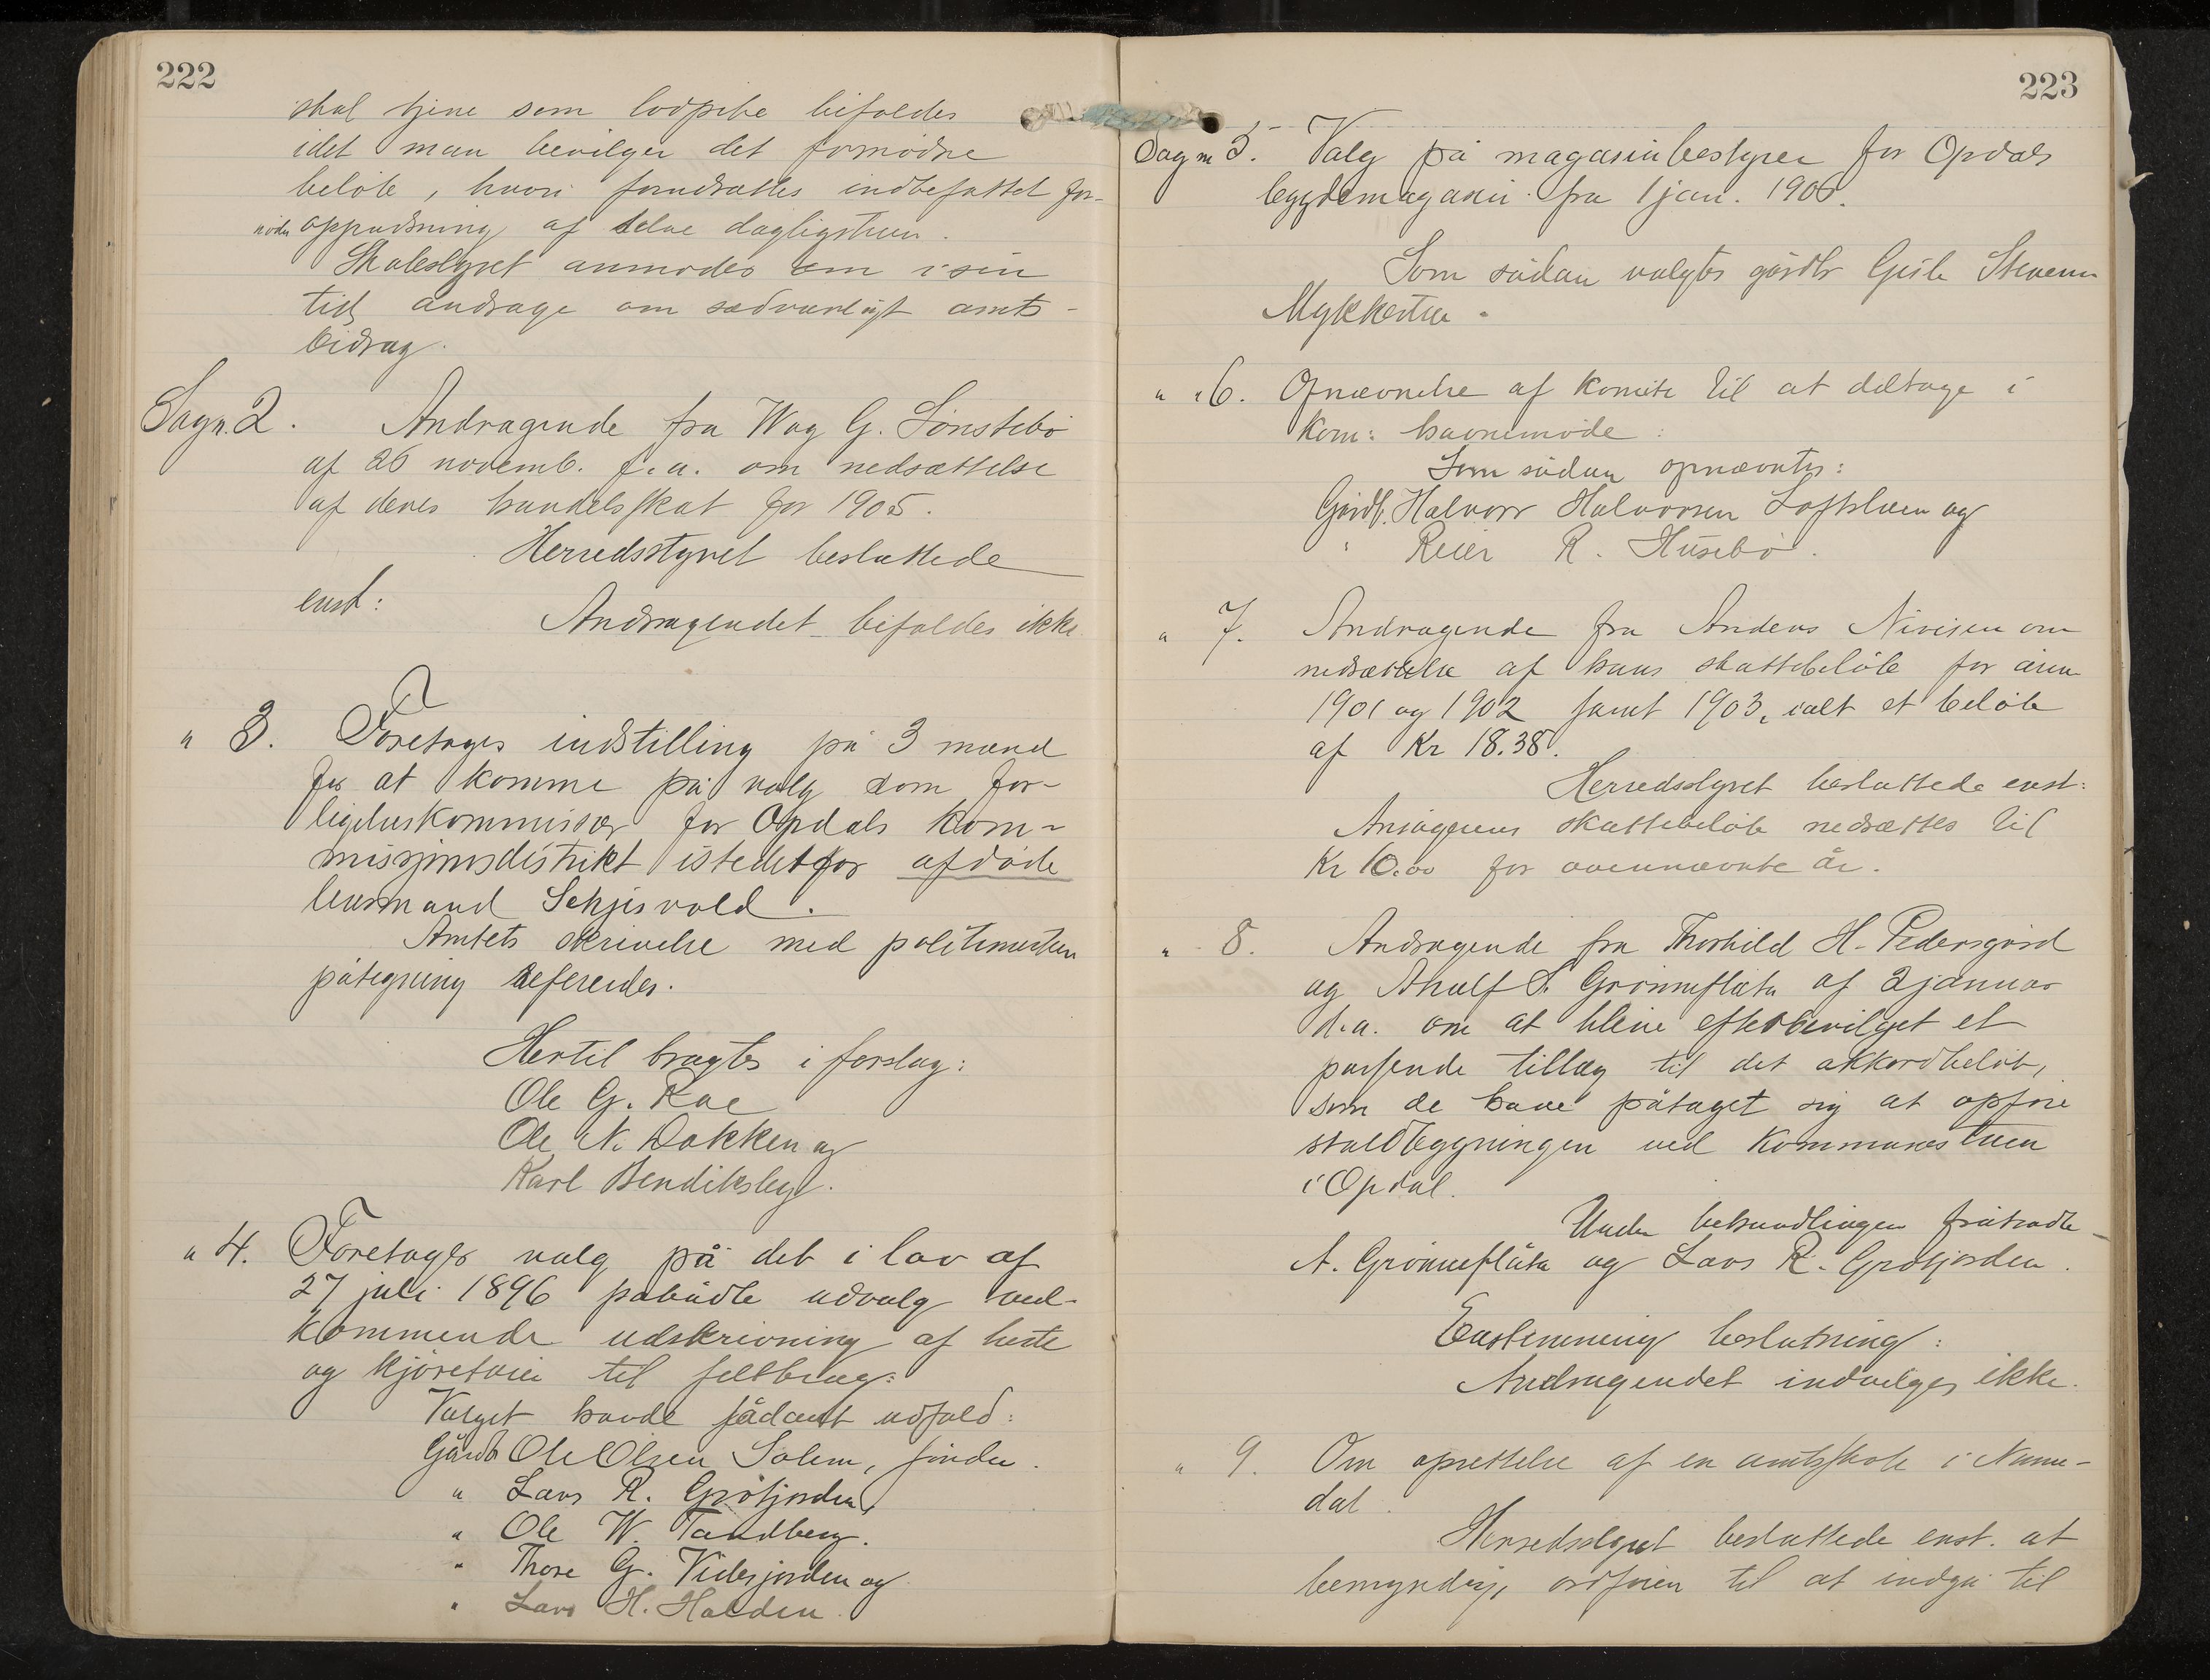 222
skal tjene som lodpibe bifaldes
idet man bevilger det fornødne
beløb, hvori forudsættes indbefattet for-
nøden oppudsning af selve dagligstuen.
Skolestyret anmodes om i sin
tid andrage om sædvanligt amts-
bidrag.
Sag n. 2. Andragende fra Wag G. Sönstebö
af 26 novemb. f. a. om nedsættelse
af deres handelsskat for 1905.
Herredsstyret besluttede
enst:
Andragendet bifaldes ikke.
" 3. Foretages indstilling på 3 mænd
for at komme på valg som for-
ligelseskommissær for Opdals kom-
missjonsdistrikt istedetfor afdøde
lensmand Sekjesvold.
Amtets skrivelse med politimesteren
påtegning refereredes.
Hertil bragtes i forslag:
Ole G. Raae
Ole N. Dokken og
Karl Bendiksby.
" 4. Foretages valg på det i lov af
27 juli 1896 påbudte udvalg ved-
kommende udskrivning af heste
og kjöretøier til feltbrug:
Valget havde sådant udfald:
Gårdb Ole Olsen Solem, Sönder.
" Lars R. Grötjorden,
" Ole W. Tandberg.
" Thore G. Videsjorden og
" Lars H. Halden.
223
Sag n 5. Valg på magasinbestyrer for Opdals
bygdemagasin fra 1 jan. 1906.
Som sådan valgtes gårdbr Gisle Stenersen
Mykkestue.
" " 6. Opnævnelse af komite til at deltage i
kom: havnemöde:
Som sådan opnævntes:
Gårdb. Halvor Halvorsen Loftsluen og
" Reier R. Husebö.
" 7. Andragende fra Anders Nirisen om
nedsættelse af hans skattebeløb for åren
1901 og 1902 samt 1903, ialt et beløb
af Kr 18.38.
Herredsstyret besluttede enst:
Ansøgerens skattebeløb nedsættes til
Kr 10.00 for ovennævnte år.
" 8. Andragende fra Thorhild H. Pedersgård
og Anulf S. Grönneflåta af 2 januar
d. a. om at blive efterbevilget et
passende tillæg til det akkordbeløb,
som de have påtaget sig at opføre
staldbygningen ved Kommunestuen
i Opdal.
Under behandlingen fratrådte
A. Grönneflåta og Lars R. Grötjorden.
Enstemmig beslutning:
Andragendet indvilges ikke.
" 9. Om oprettelse af en amtsskole i Nume-
dal.
Herredsstyret besluttede enst. at
bemyndige ordføren til at indgå til